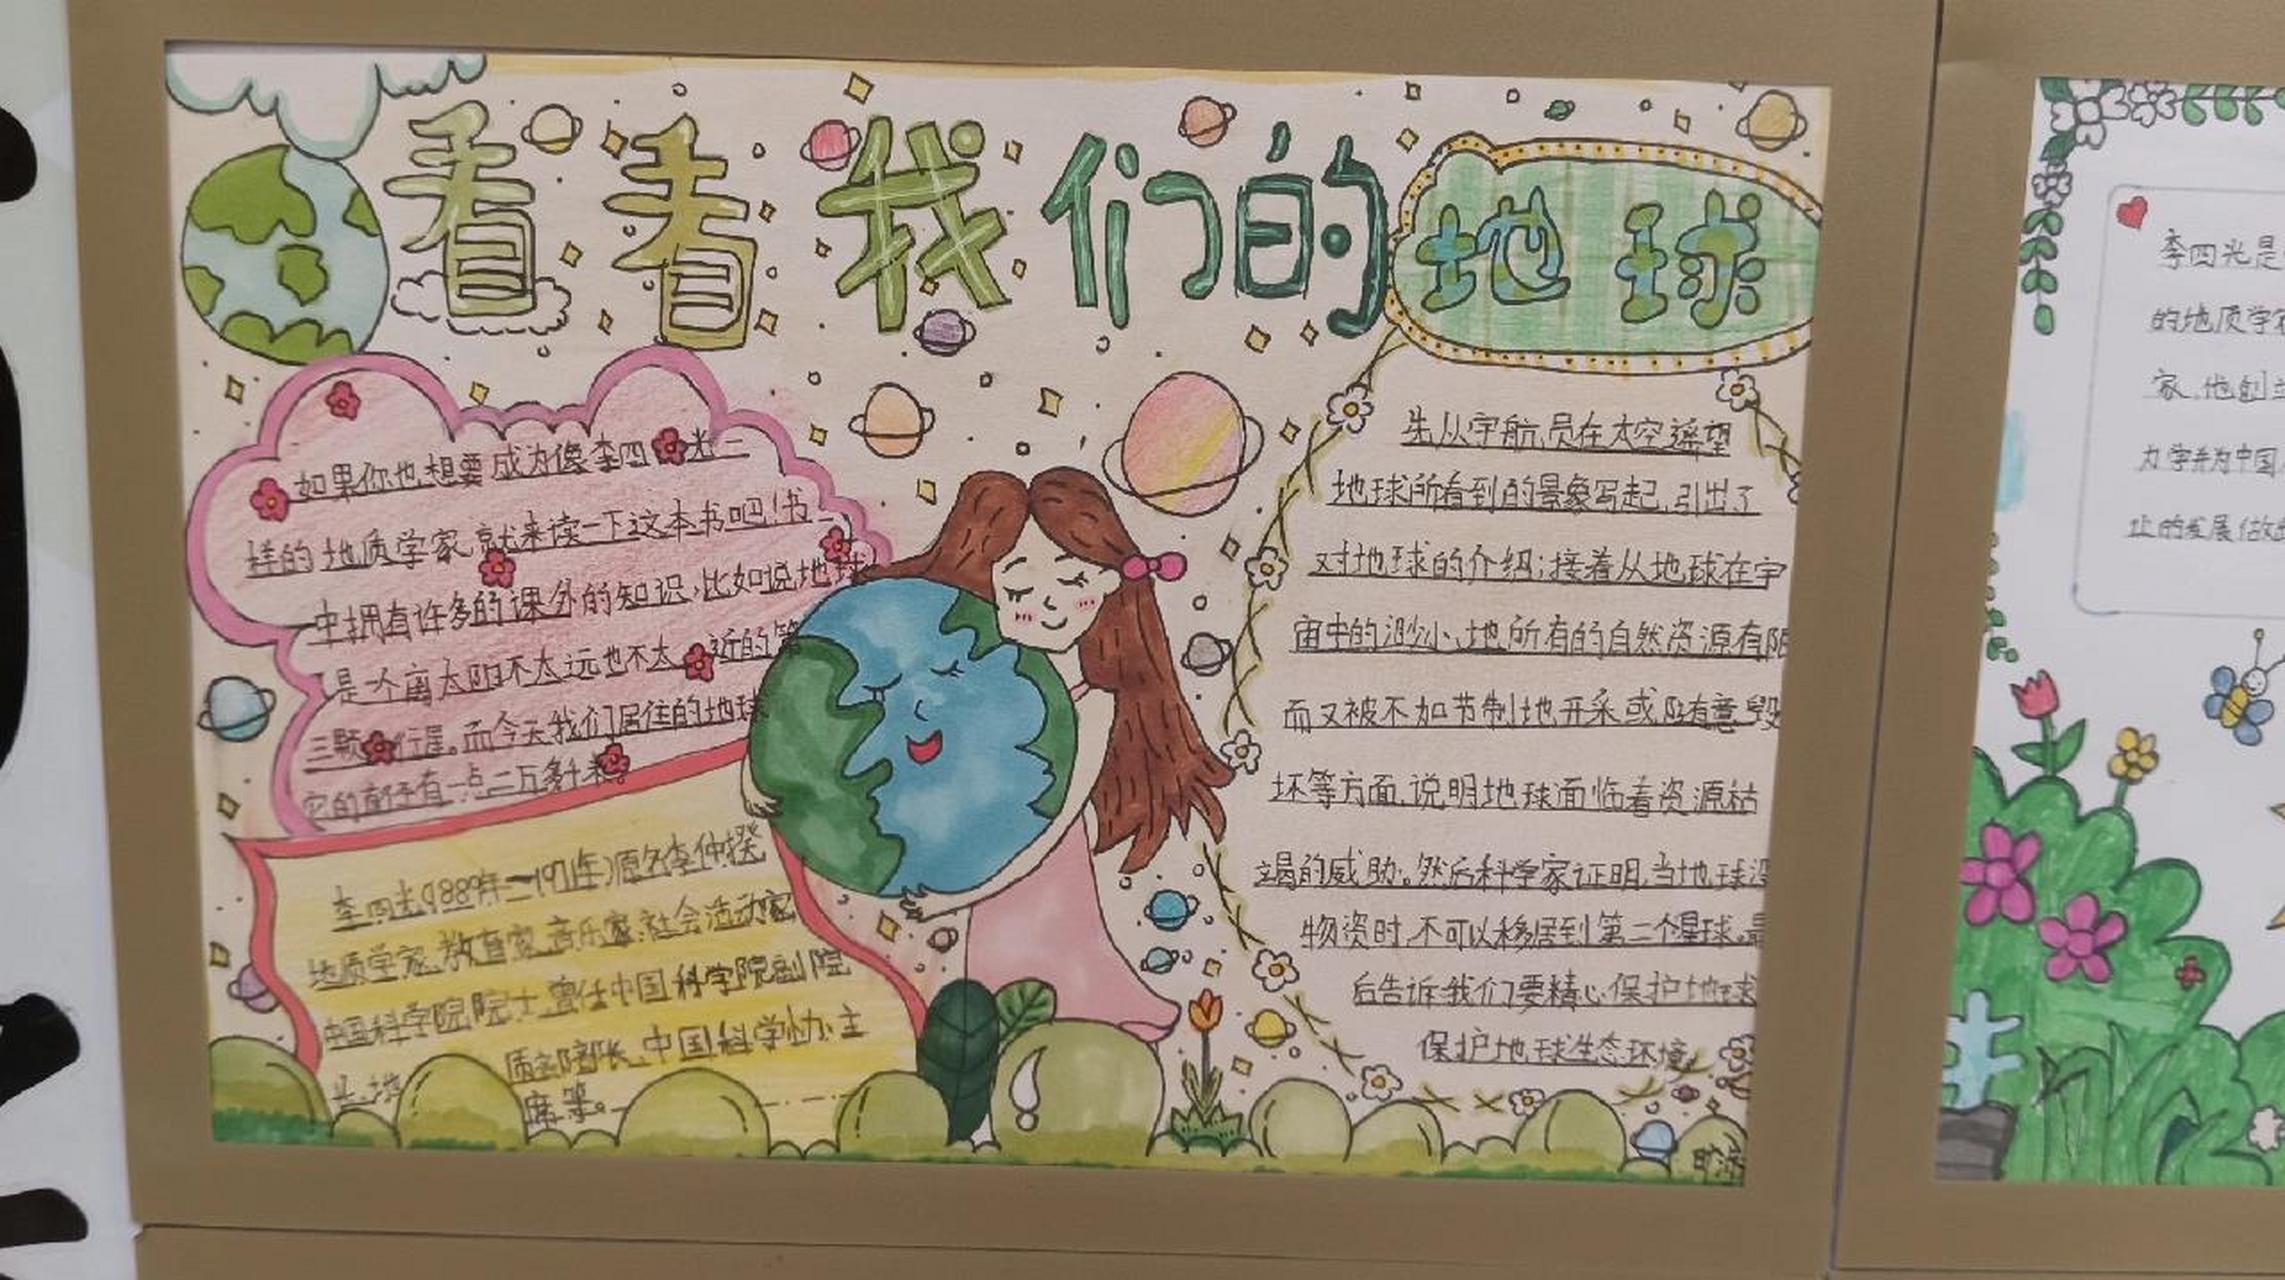 看看我们的地球
如果你也想要成为像李四光一
样的地质学家,就来读一下这本书吧!书
中拥有许多的课外的知识,比如说,地球
是一个离太阳不太远也不太近的第
三颗行星。而今天我们居住的地球
它的直径有一点二万多千米。
李四光(1889年—1971年)原名李仲揆
地质学家、教育家、音乐家、社会活动家
中国科学院院士,曾任中国科学院副院
长、地质部部长,中国科学协主
席等。
先从宇航员在太空遥望
地球所看到的景象写起,引出了
对地球的介绍;接着从地球在宇
宙中的渺小、地所有的自然资源有限
而又被不加节制地开采或随意毁
坏等方面,说明地球面临着资源枯
竭的威胁。然后科学家证明,当地球没
物资时,不可以移居到第二个星球。最
后告诉我们要精心保护地球
保护地球生态环境。
李四光是
的地质学家
家,他创立
力学并为中国
业的发展做出